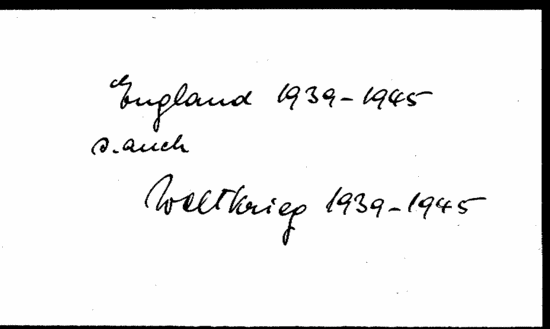 England 1939-1945
s. auch
Weltkrieg 1939-1945